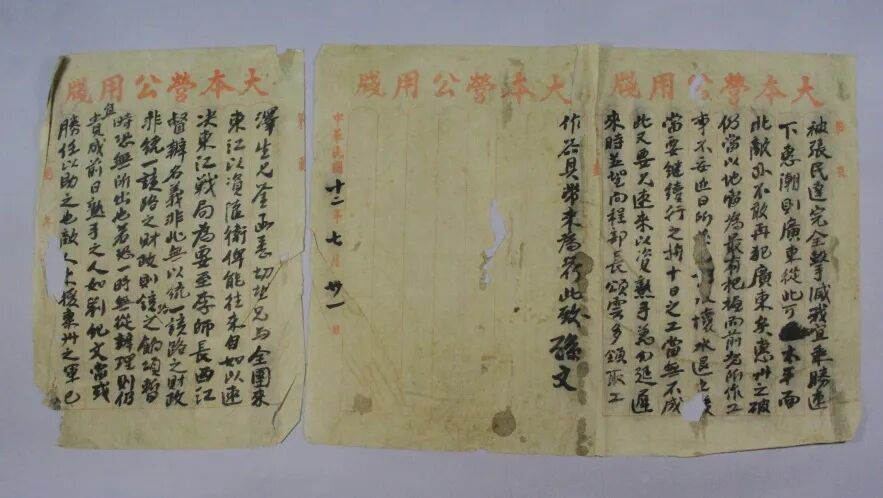 大本營公用牋
澤生兄鑒函悉切望兄與全團來
東江以資淮衛俾能往來自如以速
决東江戰局為要至李師長西江
督辦名義非此無以統一該路之財政
非統一該路之財政則路之餉項暫
時恐無所出也若恐一時無從辦理則仍
宜責成前日熟手之人如劉紀文當或
勝任以助之也敵人上援惠州之軍已
大本營公用牋
被張民達完全擊滅我宜乘勝速
下惠潮則廣東從此可太平而
此敵亦不敢再犯廣東矣惠州之破
仍當以地雷為最有把握而前所作工
事不妥近日所以壞水退之後
當要繼續行之擠十日之工當無不成
此又要兄速來以資熟手萬勿延遲
來時並望向程部長頌雲多領取工
大本營公用牋
作器具帶來為荷此致 孫文
中華民國十二年七月卅一日